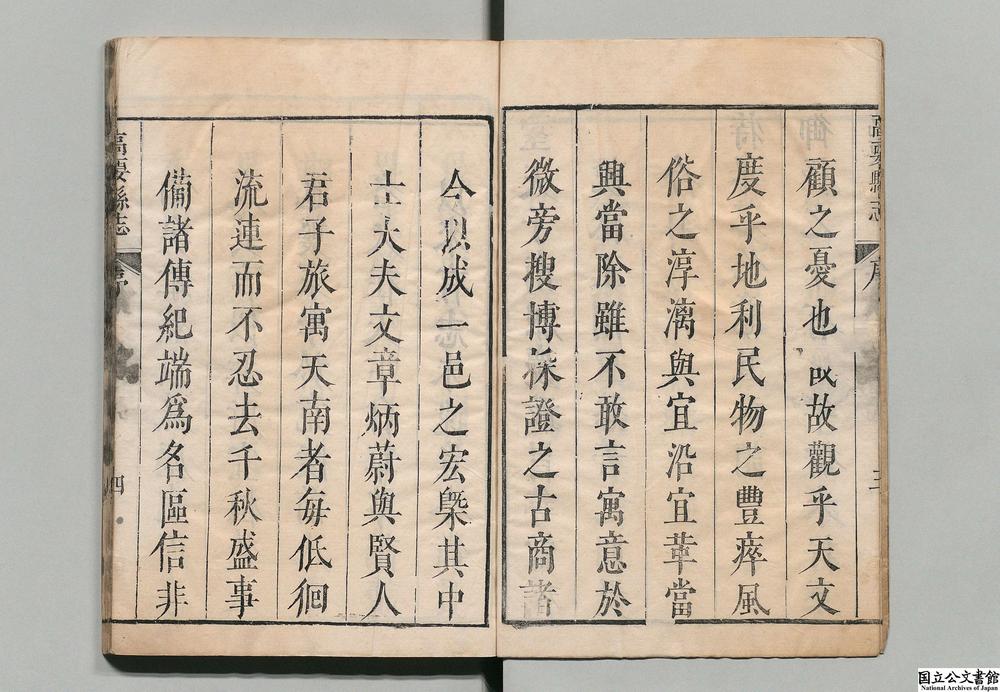 高要縣志
序
三
顧之憂也 故觀乎天文
度乎地利民物之豐瘁風
俗之淳漓與宜沿宜革當
興當除雖不敢言寓意於
微旁搜博採證之古商諸
今以成一邑之宏槩其中
士大夫文章炳蔚與賢人
君子旅寓天南者每低徊
流連而不忍去千秋盛事
備諸傳紀端爲名區信非
高要縣志
序
四
国立公文書館
National Archives of Japan